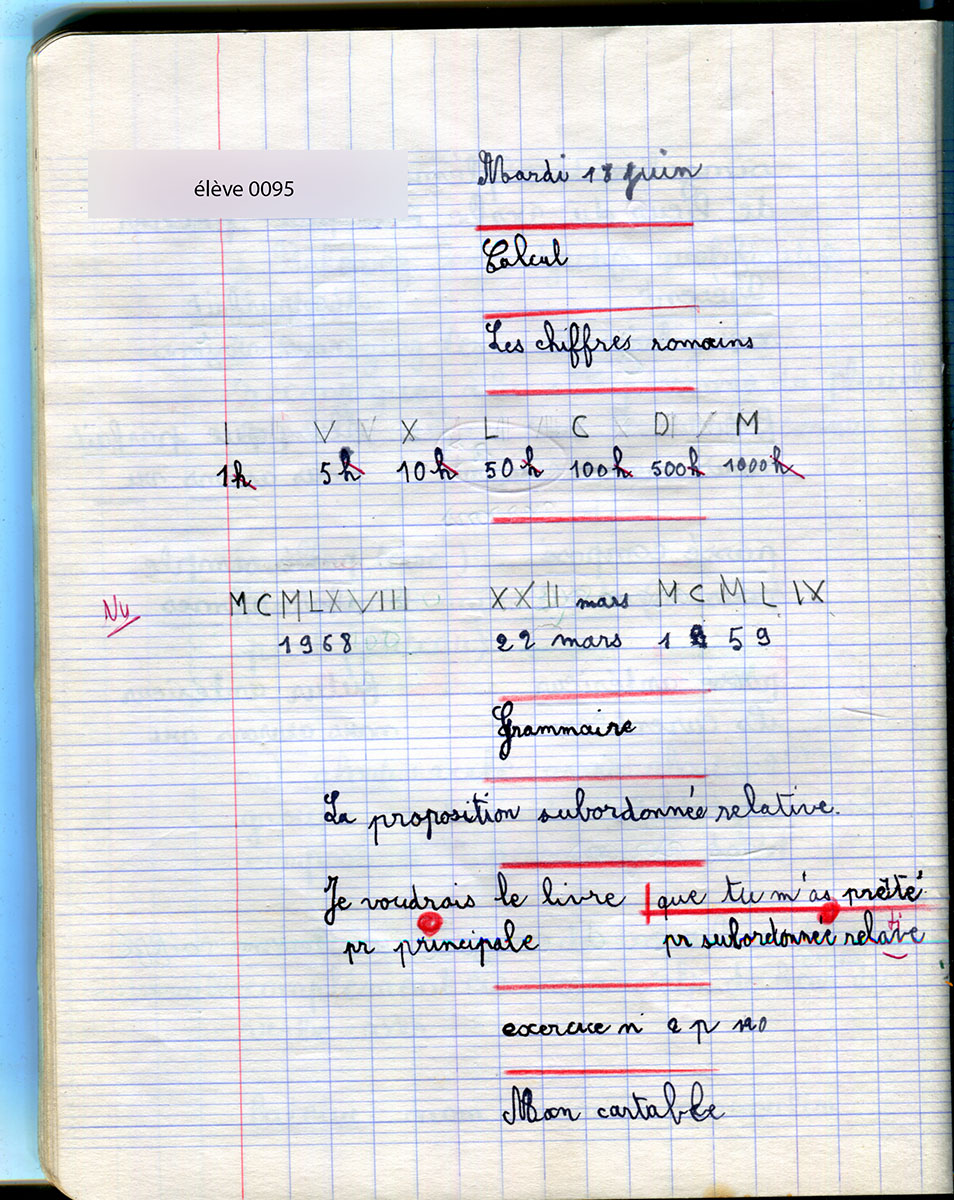 élève 0095
Mardi 18 juin
Calcul
Les chiffres romains
I V X L C D M
1h 5h 10h 50h 100h 500h 1000h
Nu MCMLXVIII XXII mars MCMLIX
1968 22 mars 1959
Grammaire
La proposition subordonnée relative.
Je voudrais le livre | que tu m'as prêté.
pr principale pr subordonnée relative
exercice n° 2 p 120
Mon cartable